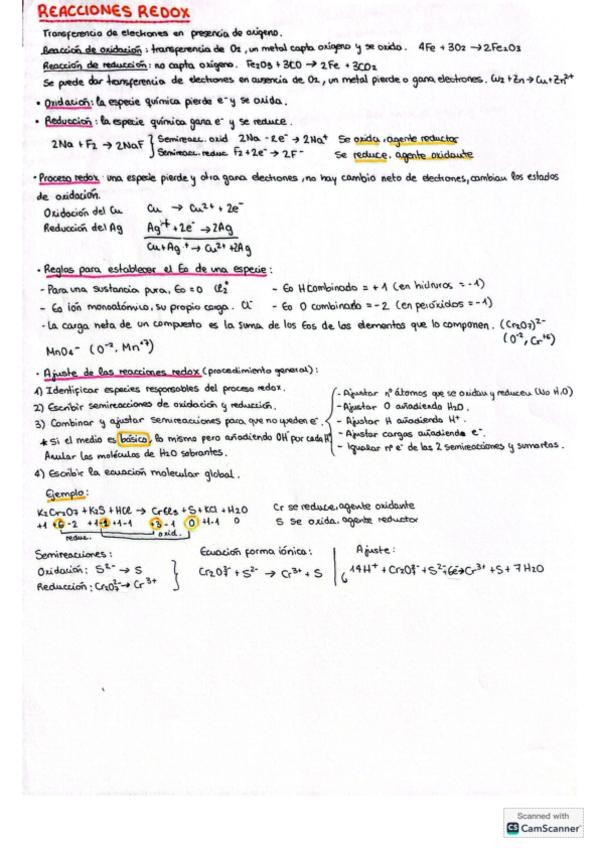 REACCIONES REDOX
Transferencia de electrones en presencia de oxígeno.
Reacción de oxidación: transferencia de O₂, un metal capta oxígeno y se oxida. 4Fe + 3O₂ → 2Fe₂O₃
Reacción de reducción: no capta oxígeno. Fe₂O₃ + 3CO → 2Fe + 3CO₂
Se puede dar transferencia de electrones en ausencia de O₂, un metal pierde o gana electrones. Cu²⁺ + Zn → Cu + Zn²⁺
• Oxidación: la especie química pierde e⁻ y se oxida.
• Reducción: la especie química gana e⁻ y se reduce.
2Na + F₂ → 2NaF
Semireacc. oxid 2Na - 2e⁻ → 2Na⁺ Se oxida, agente reductor
Semireacc. reduc F₂ + 2e⁻ → 2F⁻ Se reduce, agente oxidante
• Proceso redox: una especie pierde y otra gana electrones, no hay cambio neto de electrones, cambian los estados
de oxidación.
Oxidación del Cu Cu → Cu²⁺ + 2e⁻
Reducción del Ag Ag⁺ + 2e⁻ → 2Ag
Cu + Ag⁺ → Cu²⁺ + 2Ag
• Reglas para establecer el Eo de una especie:
- Para una sustancia pura, Eo = 0 Cl₂⁰ - Eo H combinado = +1 (en hidruros = -1)
- Eo ión monoatómico, su propia carga. Cl⁻ - Eo O combinado = -2 (en peróxidos = -1)
- La carga neta de un compuesto es la suma de los Eos de los elementos que lo componen. (Cr₂O₇)²⁻
MnO₄⁻ (O⁻², Mn⁺⁷) (O⁻², Cr⁺⁶)
• Ajuste de las reacciones redox (procedimiento general):
1) Identificar especies responsables del proceso redox.
2) Escribir semireacciones de oxidación y reducción.
3) Combinar y ajustar semireacciones para que no queden e⁻.
- Ajustar nº átomos que se oxidan y reducen (No H,O)
- Ajustar O añadiendo H₂O.
- Ajustar H añadiendo H⁺.
- Ajustar cargas añadiendo e⁻.
- Igualar nº e⁻ de las 2 semireacciones y sumarlas.
* Si el medio es básico, lo mismo pero añadiendo OH⁻ por cada H⁺.
Anular las moléculas de H₂O sobrantes.
4) Escribir la ecuación molecular global.
Ejemplo:
K₂Cr₂O₇ + K₂S + HCl → CrCl₃ + S + KCl + H₂O Cr se reduce, agente oxidante
+1 +6 -2 +1 -2 +1 -1 +3 -1 0 +1 -1 0 S se oxida, agente reductor
reduc. oxid.
Semireacciones: Ecuación forma iónica: Ajuste:
Oxidación: S²⁻ → S
Reducción: Cr₂O₇²⁻ → Cr³⁺
Cr₂O₇²⁻ + S²⁻ → Cr³⁺ + S
14H⁺ + Cr₂O₇²⁻ + S²⁻ + 6e → Cr³⁺ + S + 7H₂O
Scanned with
CS CamScanner